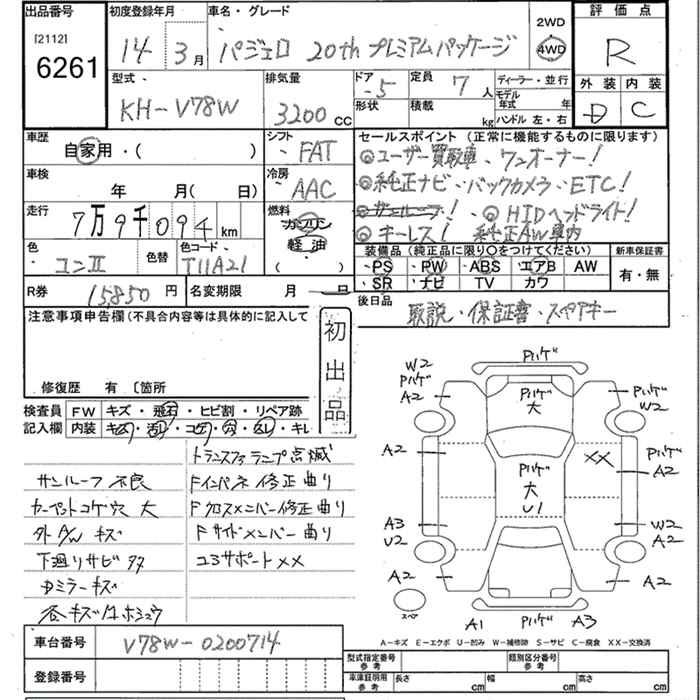 出品番号 初度登録年月 車名・グレード 2WD 評価点
[2112] 6261 14年 3月 パジェロ 20th プレミアムパッケージ 4WD R
型式 排気量 ドア 定員 ディーラー・並行 外装 内装
KH-V78W 3200cc 5 7人 モデル年式 年 D C
形状 積載 kg ハンドル 左・右
車歴 シフト セールスポイント (正常に機能するものに限ります)
自家用・( ) FAT ◎ユーザー買取車、ワンオーナー!
車検 冷房 ◎純正ナビ・バックカメラ・ETC!
年 月( 日) AAC ◎サンルーフ! ◎HIDヘッドライト!
走行 燃料 ◎キーレス! 純正AW車内
7万9千094km ガソリン
軽油
( )
色 色替 色コード 装備品 (純正品に限り○をつけてください) 新車保証書
コンⅡ T11A21 PS PW ABS エアB AW 有・無
SR ナビ TV カワ
R券 15850円 名変期限 月 日 後日品 取説・保証書・スペアキー
注意事項申告欄(不具合内容等は具体的に記入して
初出品
修復歴 有 〔箇所
検査員 FW キズ・飛石・ヒビ割・リペア跡
記入欄 内装
トランスファランプ点滅
サンルーフ不良 Fインパネ修正曲り
カーペットコゲ穴 大 Fクロスメンバー修正曲り
外A/W キズ Fサイドメンバー曲り
下廻りサビ コアサポートXX
ミラーキズ
W2 Pハゲ A2 Pハゲ
Pハゲ 大 Pハゲ W2
A2 XX Pハゲ A2
Pハゲ 大 U1
A3 U2 W2 A2
A2 A2
スペア A1 A3
A-キズ E-エクボ U-凹み W-補修跡 S-サビ C-腐食 XX-交換済
車台番号 V78W-0200714
登録番号
型式指定番号 参考 類別区分番号 参考
車庫証明用 参考 長さ cm 幅 cm 高さ cm